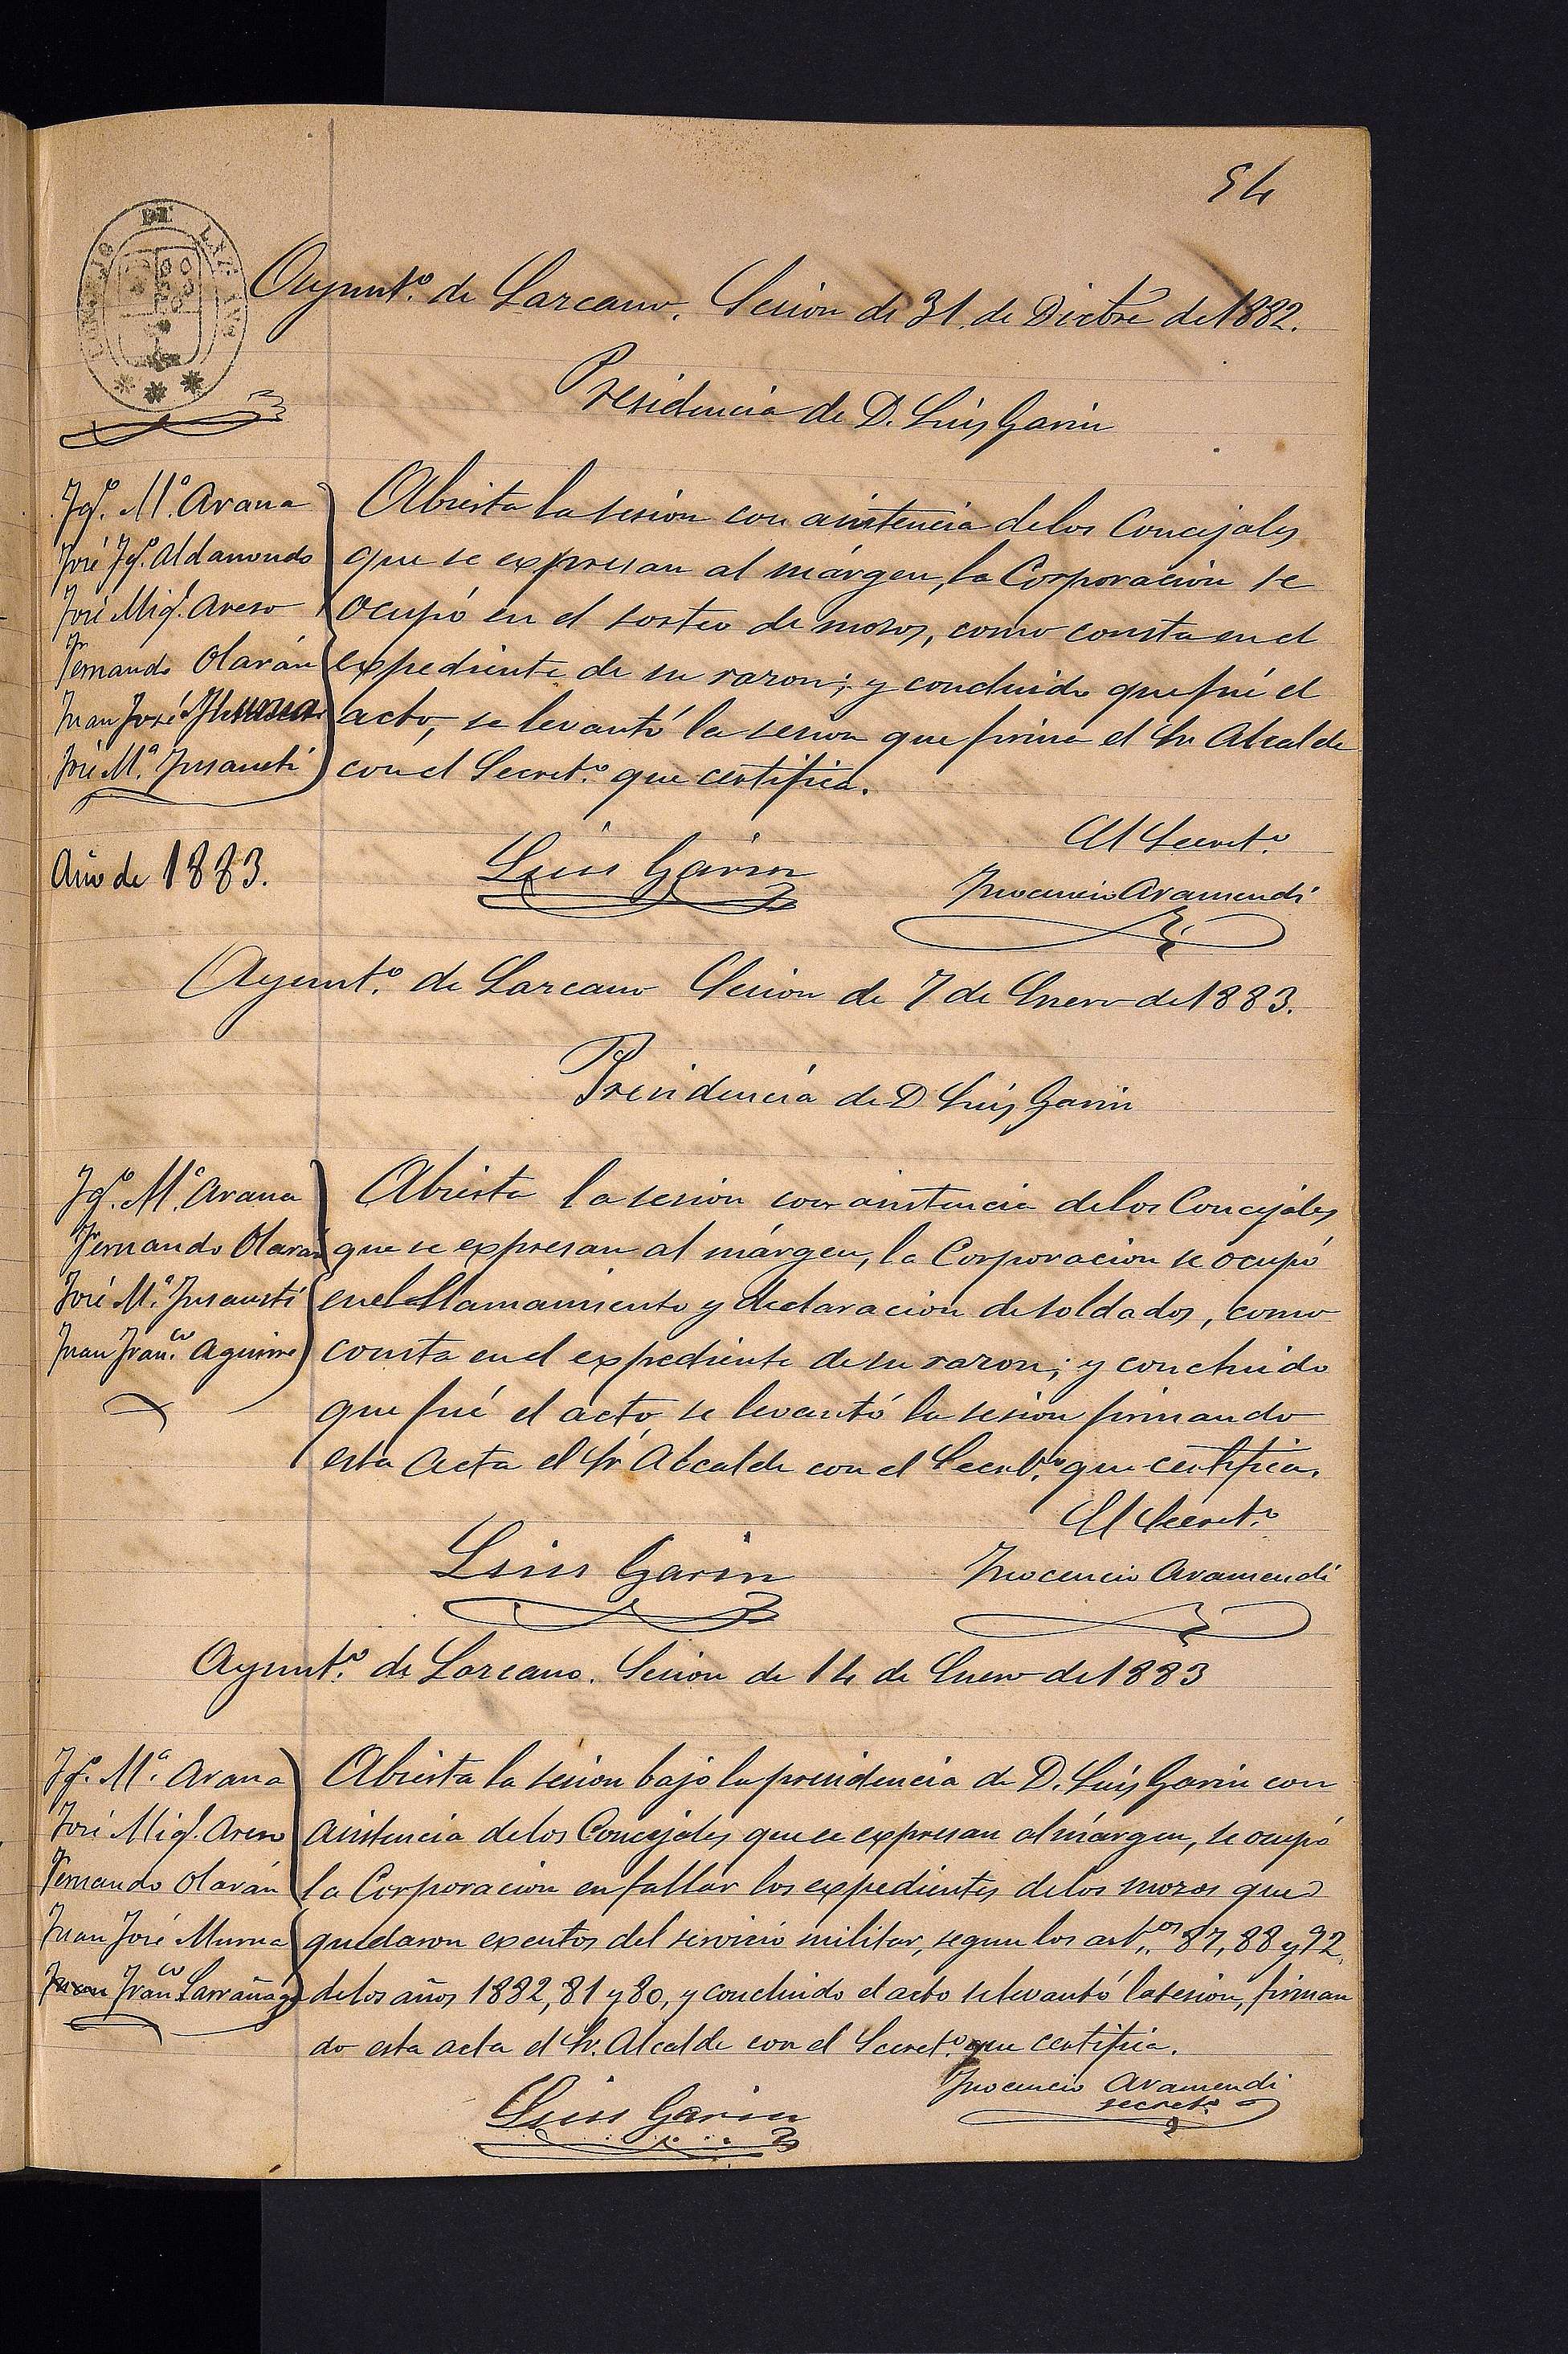 54
CONCEJO DE LAZCANO
Ayunt.º de Lazcano. Sesion de 31, de Dicbre de 1882.
Presidencia de D. Luis Garin
Ygº. Mª. Arana
José Ygº. Aldamondo
José Migl. Areso
Fernando Olarán
Juan José
José Mª. Insausti
Abierta la sesion con asistencia delos Concejales
que se expresan al márgen, la Corporacion se
ocupó en el sorteo de mozos, como consta en el
expediente de su razon; y concluido que fué el
acto, se levantó la sesion que firma el Sr. Alcalde
con el Secret.º que certifica.
El Secret.º
Luis Garin
Inocencio Aramendi
Año de 1883.
Ayunt.º de Lazcano Sesion de 7 de Enero de 1883.
Presidencia de D Luis Garin
Ygº. Mª. Arana
Fernando Olarán
José Mª. Insausti
Juan Francº Aguirre
Abierta la sesion con asistencia delos Concejales
que se expresan al márgen, la Corporacion se ocupó
en el llamamiento y declaracion de soldados, como
consta en el expediente de su razon; y concluido
que fué el acto, se levantó la sesion firmando
esta Acta el Sr Alcalde con el Secret.º que certifica.
El Secret.º
Luis Garin
Inocencio Aramendi
Ayunt.º de Lazcano. Sesion de 14 de Enero de 1883
Ygº. Mª. Arana
José Migl. Areso
Fernando Olarán
Juan José Murua
Juan Francº Larrañaga
Abierta la sesion bajo la presidencia de D. Luis Garin con
asistencia delos Concejales que se expresan al márgen, se ocupó
la Corporacion en fallar los expedientes delos mozos que
quedaron exentos del servicio militar, segun los artos. 87, 88 y 92,
delos años 1882, 81 y 80, y concluido el acto se levantó la sesion, firman
do esta acta el Sr. Alcalde con el Secret.º que certifica.
Inocencio Aramendi
secret.º
Luis Garin